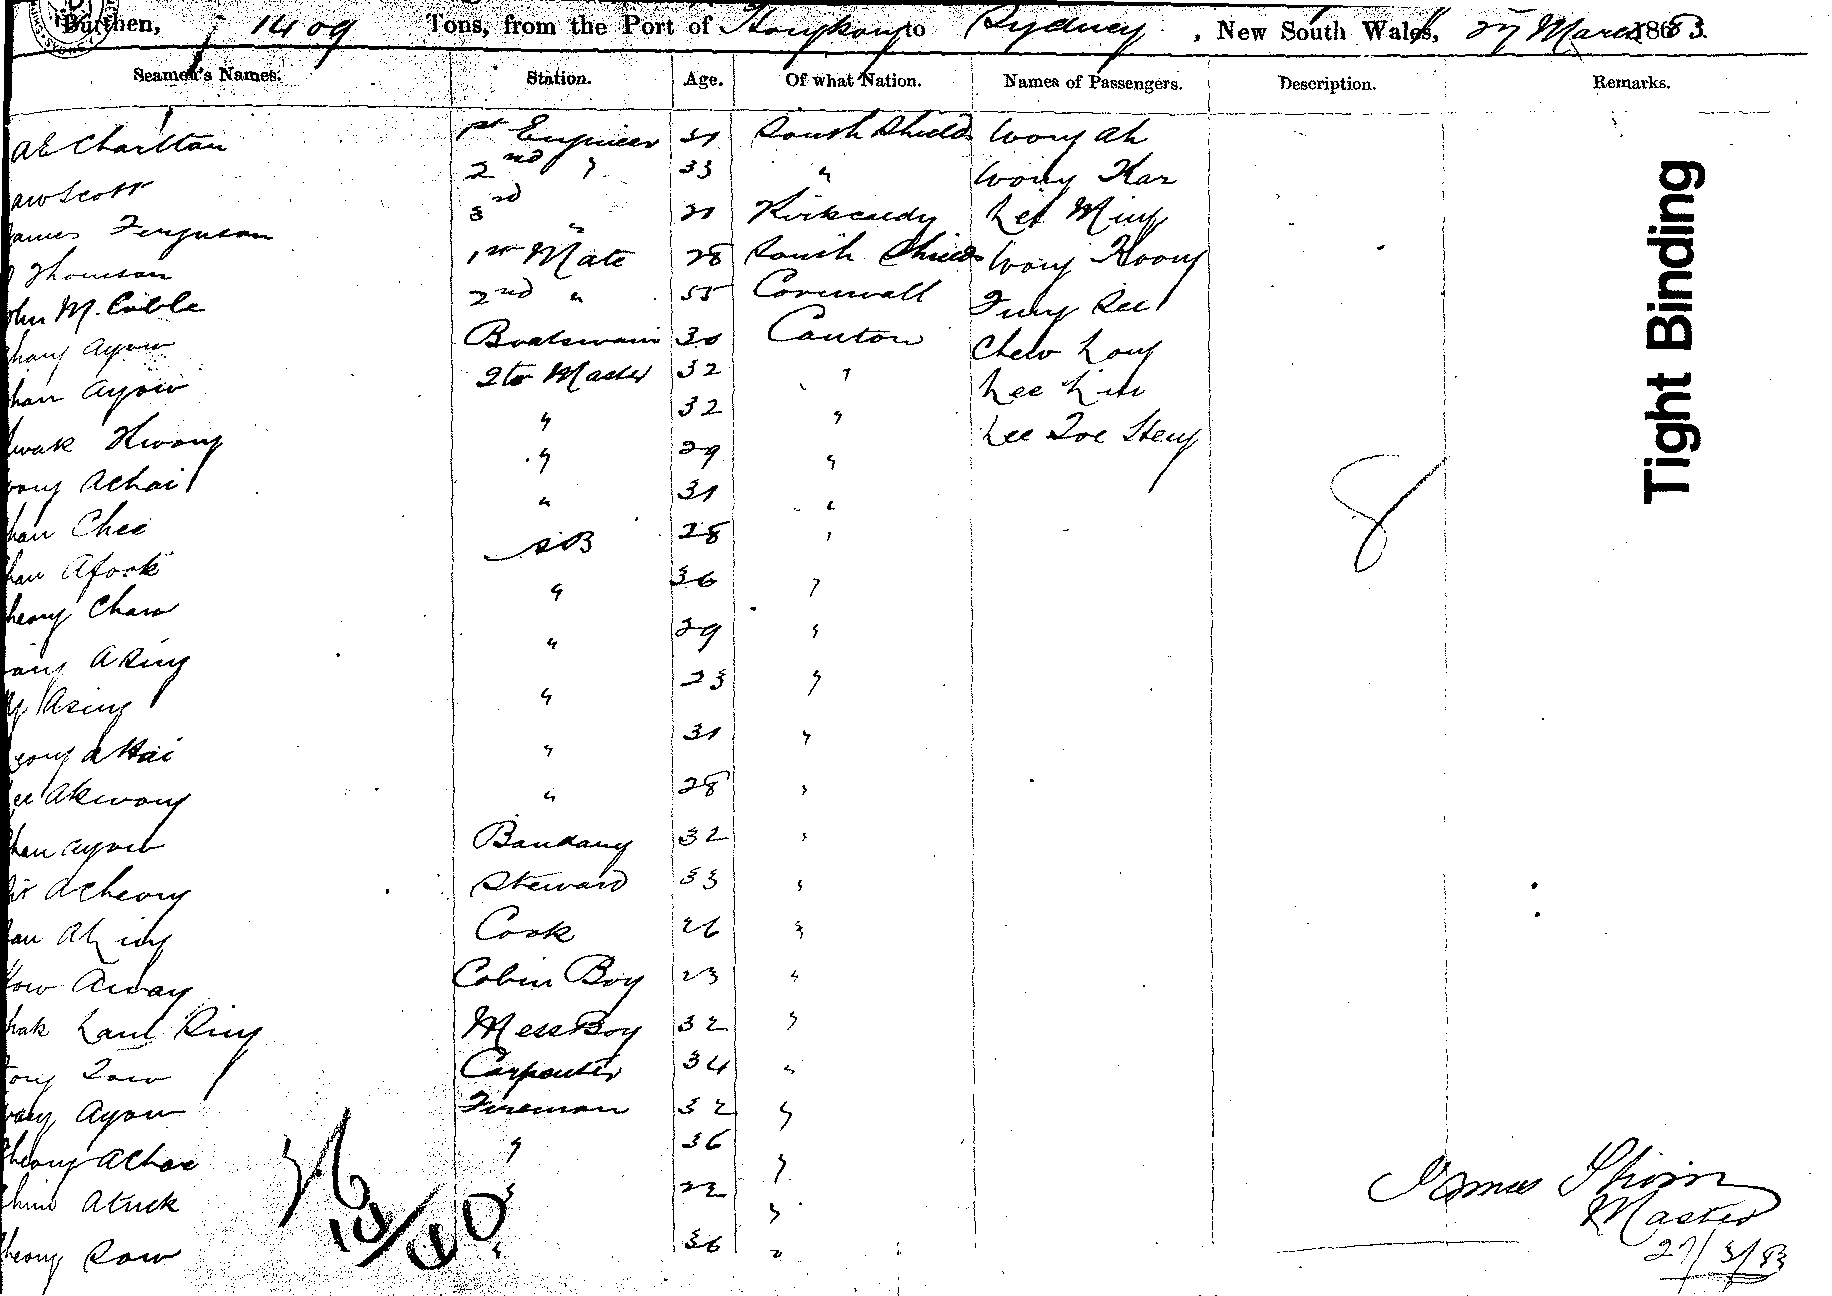 Burthen, 1409 Tons, from the Port of Hongkong to Sydney, New South Wales, 27 March 1883.
Seamen's Names. Station. Age. Of what Nation. Names of Passengers. Description. Remarks.
Charltan 1st Engineer 31 South Shields Wong Ah
Scott 2nd " 33 " Wong Kar
James Ferguson 3rd " 21 Kirkcaldy Lee Ming
Thomson 1st Mate 28 South Shields Wong Koong
John M. Cribble 2nd " 55 Cornwall Fung See
Ayow Boatswain 30 Canton Chew Long
han Ayow 2tr Master 32 " Lee Lin
wak Kwong " 32 " Lee Toe Heng
ong Achai " 29 "
han Chee " 31 "
han Afook AB 28 "
heong Chaw " 36 "
ASing " 29 "
Asing " 23 "
eong aHai " 31 "
ee Akwong " 28 "
han ayow Bandany 32 "
Acheong Steward 33 "
an Ah ing Cook 26 "
ow Away Cabin Boy 23 "
hak Lam Sing Mess Boy 32 "
ong Tow Carpenter 34 "
Ayow Fireman 32 "
heong Achoe " 36 "
Atuck " 22 "
heong Sow " 36 "
8
36
10/40
James
Master
27/3/83
Tight Binding